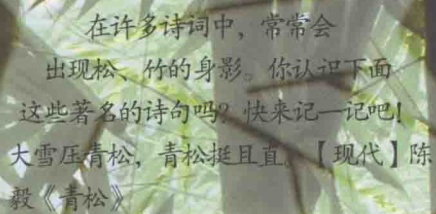 在许多诗词中，常常会
出现松、竹的身影。你认识下面
这些著名的诗句吗？快来记一记吧！
大雪压青松，青松挺且直。【现代】陈
毅《青松》